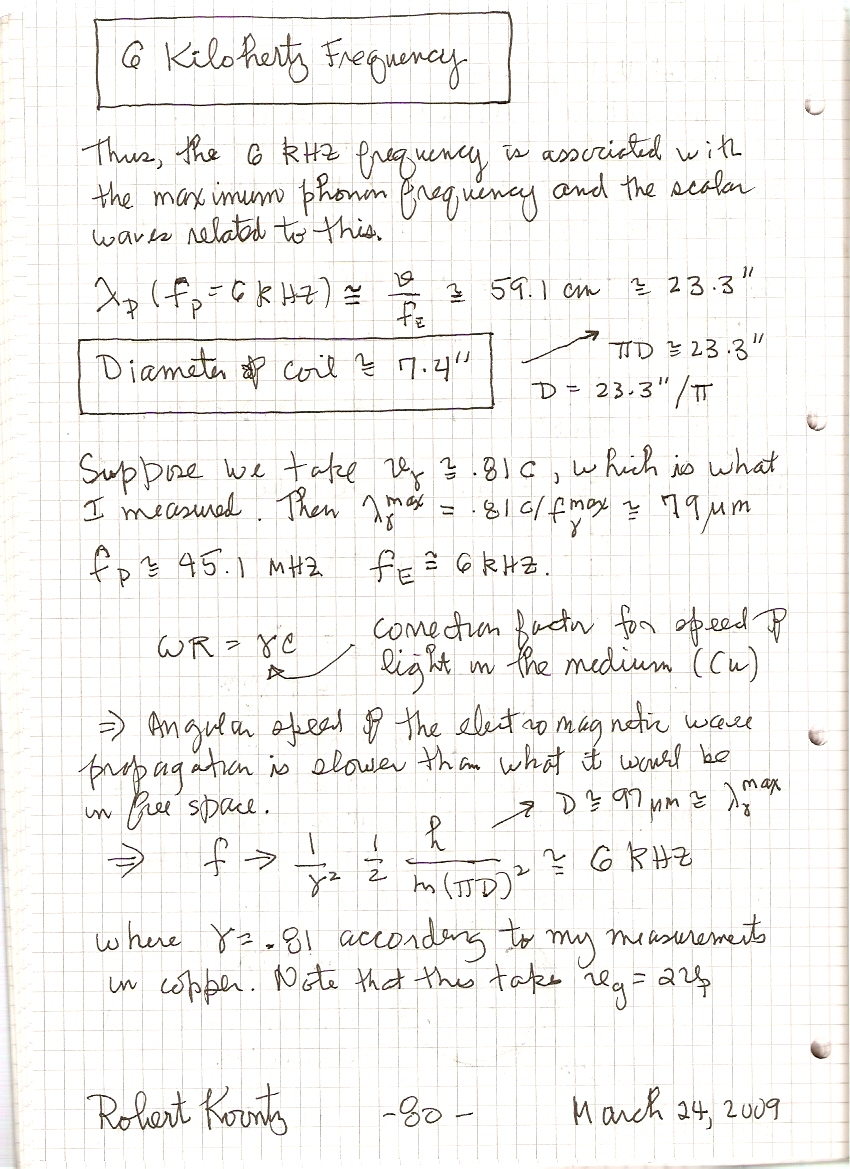 6 Kilohertz Frequency
Thus, the 6 kHz frequency is associated with
the maximum phonon frequency and the scalar
waves related to this.
λp (fp = 6 kHz) ≅ v/fE ≅ 59.1 cm ≅ 23.3"
Diameter of coil ≅ 7.4"
πD ≅ 23.3"
D = 23.3"/π
Suppose we take vγ ≅ .81c, which is what
I measured. Then λγ^max = .81c/fγ^max ≅ 79 μm
fp ≅ 45.1 MHz fE ≅ 6 kHz.
ωR = γc
correction factor for speed of
light in the medium (Cu)
⇒ Angular speed of the electromagnetic wave
propagation is slower than what it would be
in free space.
D ≅ 97 μm ≅ λγ^max
⇒ f → 1/γ² 1/2 h/m(πD)² ≅ 6 kHz
where γ = .81 according to my measurements
in copper. Note that this takes vg = 2vp
Robert Koontz -80- March 24, 2009